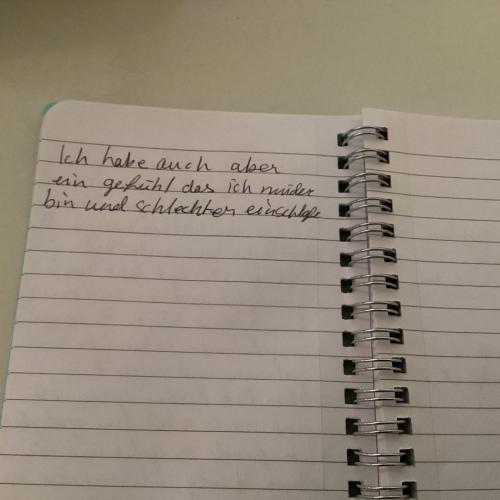 Ich habe auch aber
ein gefühl das ich müder
bin und schlechter einschlafe